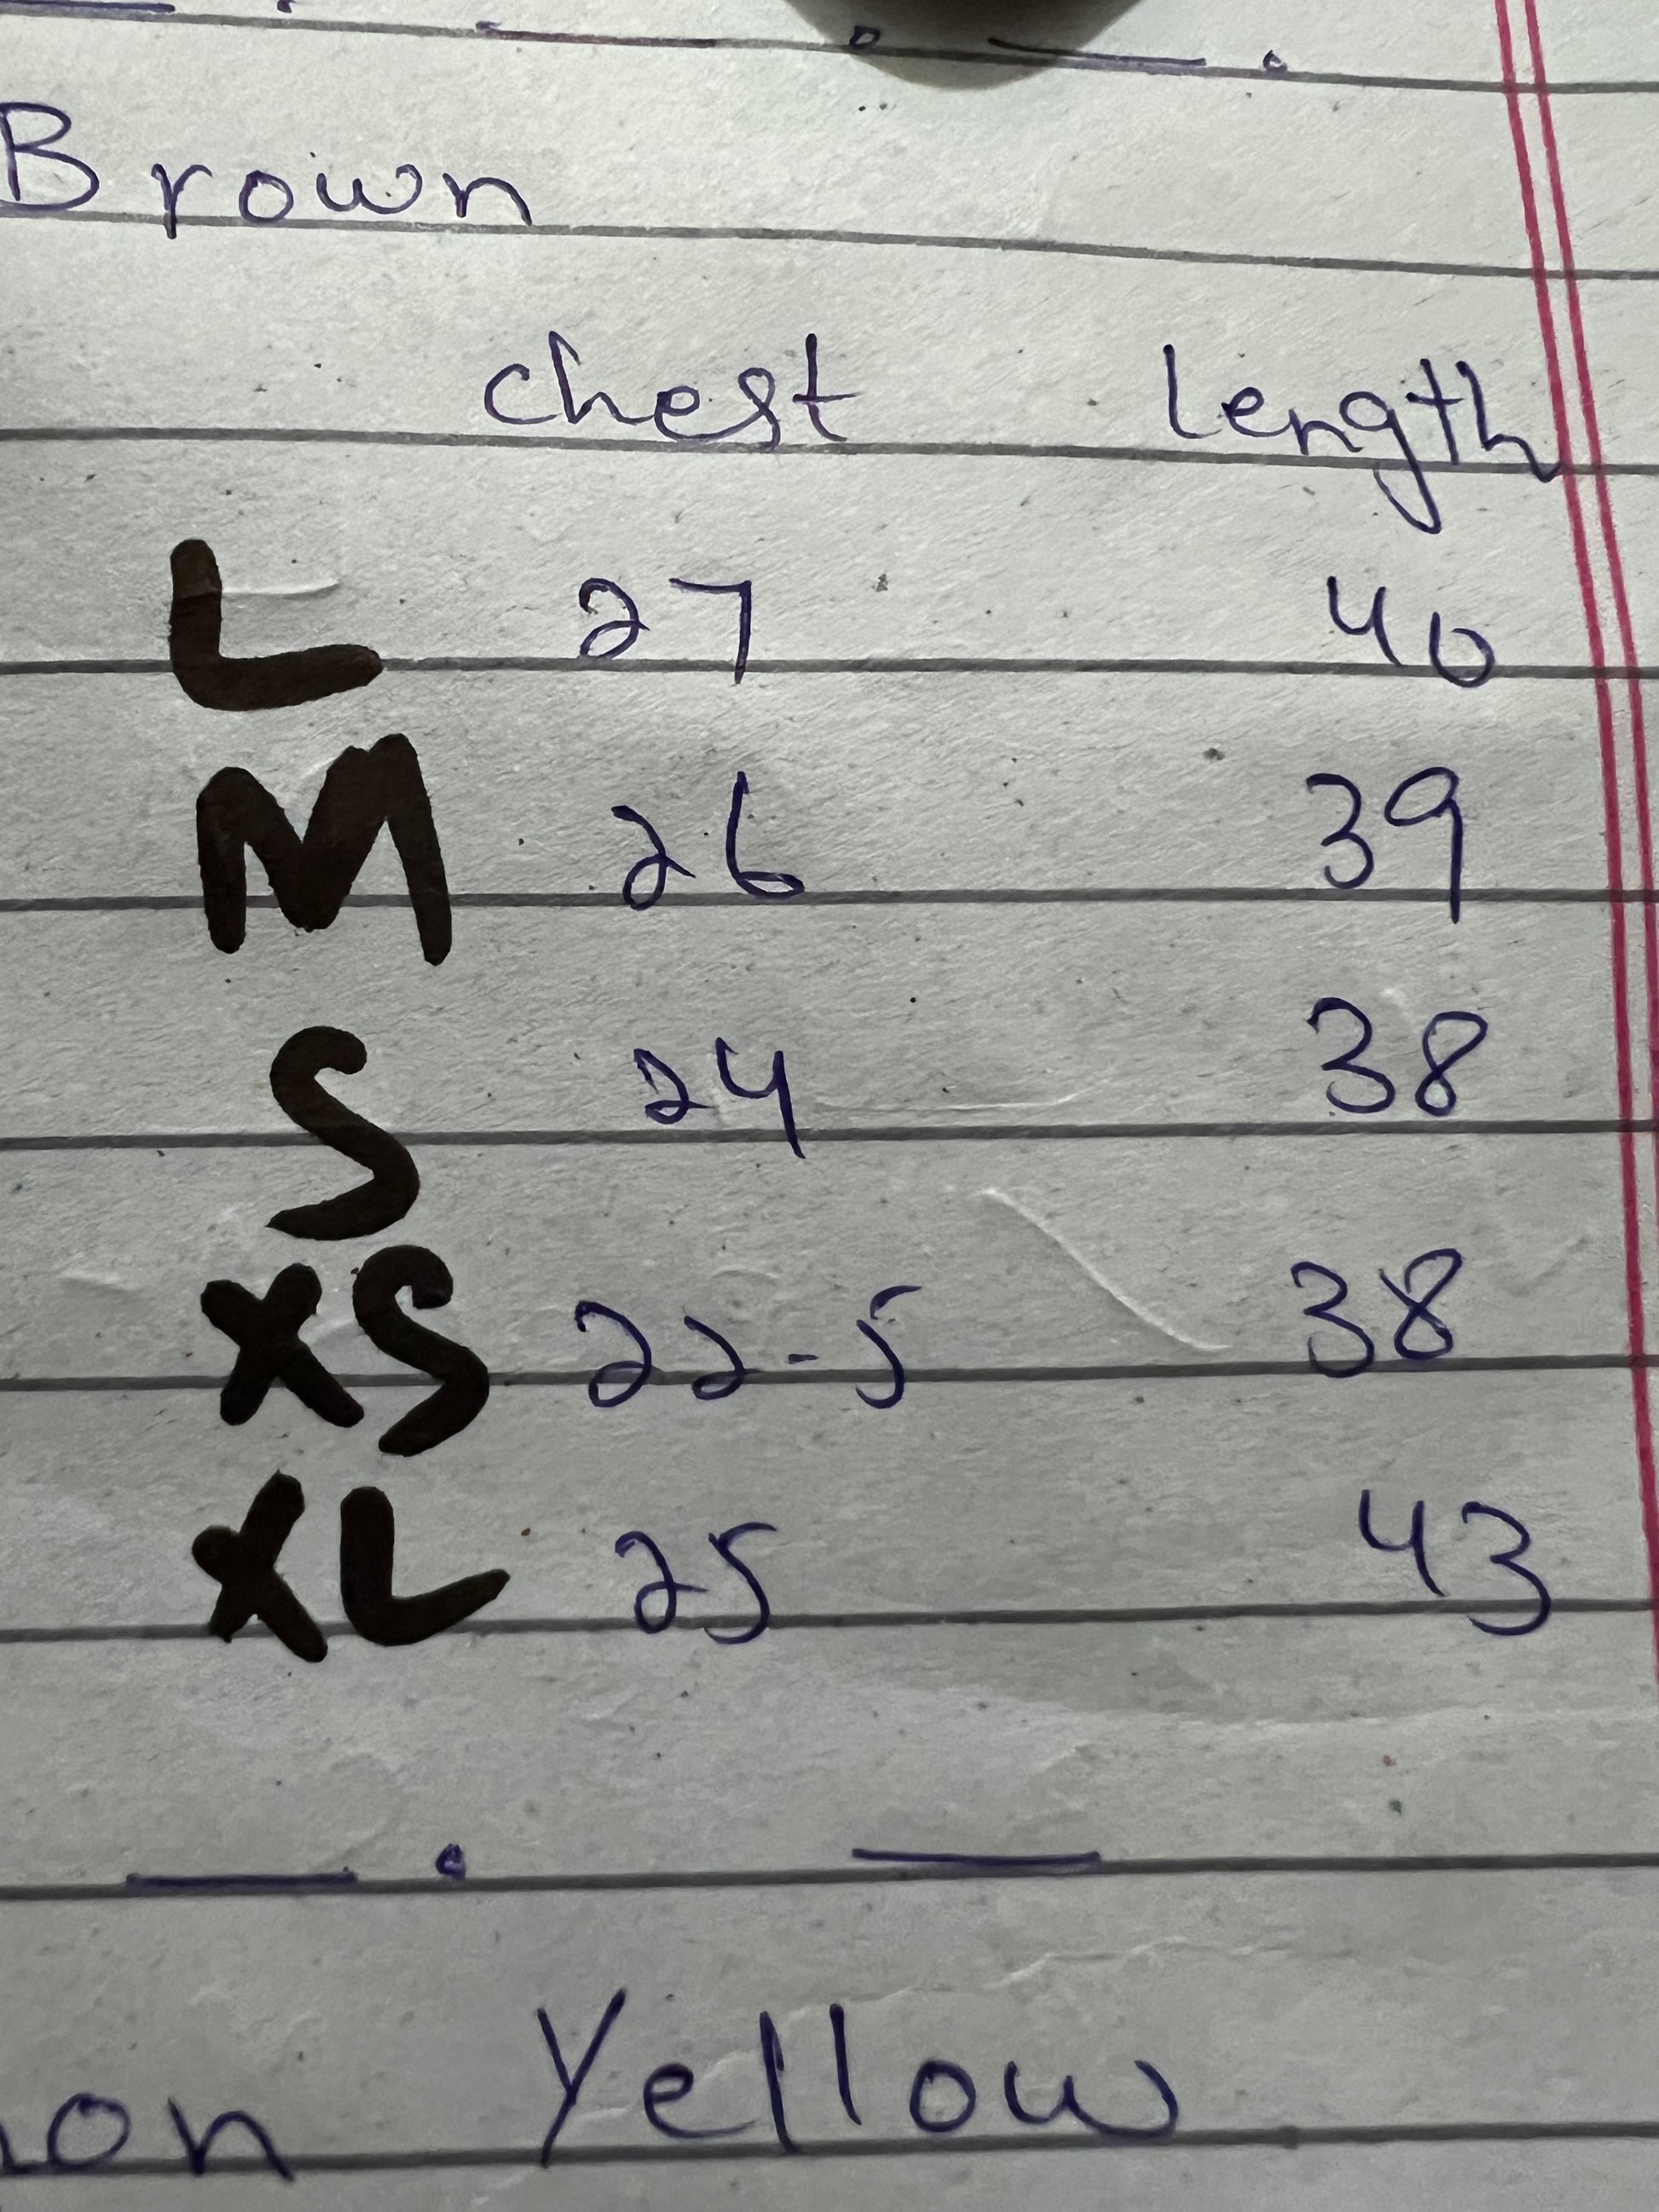 Brown
chest length
L 27 40
M 26 39
S 24 38
XS 22-5 38
XL 25 43
Yellow